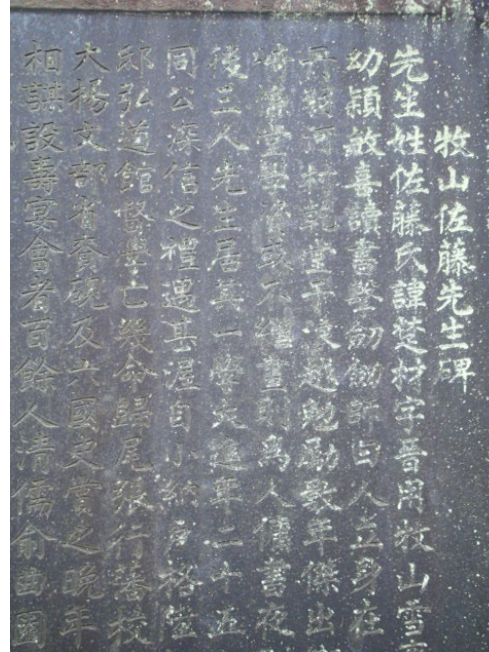 牧山佐藤先生碑
先生姓佐藤氏諱楚材字晋用牧山雪
幼穎敏喜讀書學劍劍師曰人立身在
丹羽 河村乾堂于 勉勵數年傑出
學資或不繼晝則為人傭書夜
後三人先生居其一學大進年二十五
同公深信之禮遇甚渥自小納戸 諡
邸弘道館督學亡幾命歸尾張行藩校
大揚文部省賚硯及大國史賞之晩年
相聯設壽宴會者百餘人清儒俞曲園